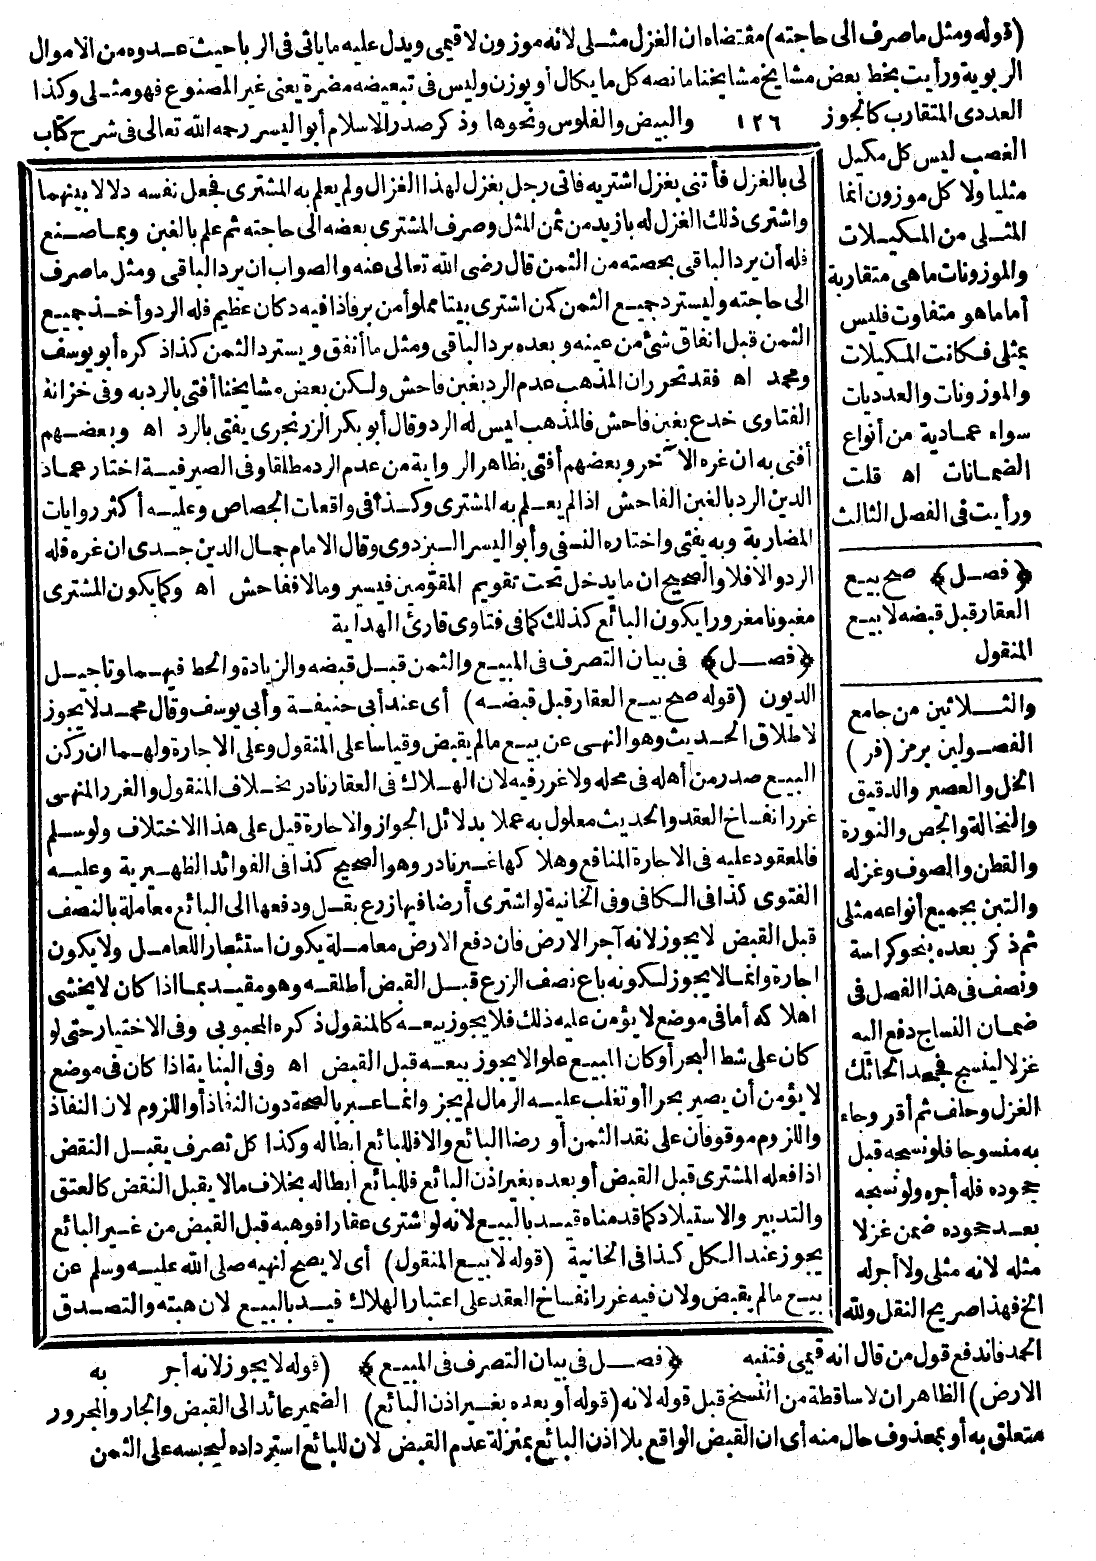 (قوله ومثل ماصرف الى حاجته) مقتضاه ان الغزل مثلى لانه موزون لا قيمى ويدل عليه ما يأتى فى الربا حيث عدوه من الاموال
الربوية ورأيت بخط بعض مشايخ مشايخنا ما نصه كل ما يكال أو يوزن وليس فى تبعيضه مضرة يعنى غير المصنوع فهو مثلى وكذا
العددى المتقارب كالجوز ١٢٦ والبيض والفلوس ونحوها وذكر صدر الاسلام أبو اليسر رحمه الله تعالى فى شرح كتاب
الغصب ليس كل مكيل
مثليا ولا كل موزون انما
المثلى من المكيلات
والموزونات ما هى متقاربة
أما ما هو متفاوت فليس
بمثلى فكانت المكيلات
والموزونات والعدديات
سواء عمادية من أنواع
الضمانات اه قلت
ورأيت فى الفصل الثالث
﴿فصل﴾ صح بيع
العقار قبل قبضه لا بيع
المنقول
والثلاثين من جامع
الفصولين برمز (فر)
الخل والعصير والدقيق
والنخالة والجص والنورة
والقطن والصوف وغزله
والتبن بجميع أنواعه مثلى
ثم ذكر بعده بنحو كراسة
ونصف فى هذا الفصل فى
ضمان النساج دفع اليه
غزلا لينسج فجحد الحائك
الغزل وحلف ثم أقر وجاء
به منسوجا فلو نسجه قبل
جحوده فله أجره ولو نسجه
بعد جحوده ضمن غزلا
مثله لانه مثلى ولا أجر له
الخ فهذا صريح النقل ولله
الحمد فاندفع قول من قال انه قيمى فتنبه
لى بالغزل فأتنى بغزل اشتريه فاتى رجل بغزل لهذا الغزال ولم يعلم به المشترى فجعل نفسه دلالا بينهما
واشترى ذلك الغزل له بازيد من ثمن المثل وصرف المشترى بعضه الى حاجته ثم علم بالغبن وبما صنع
فله أن يرد الباقى بحصته من الثمن قال رضى الله تعالى عنه والصواب ان يرد الباقى ومثل ماصرف
الى حاجته وليسترد جميع الثمن كمن اشترى بيتا مملوأ من بر فاذا فيه دكان عظيم فله الرد وأخذ جميع
الثمن قبل انفاق شئ من عينه وبعده يرد الباقى ومثل ما أنفق ويسترد الثمن كذا ذكره أبو يوسف
ومحمد اه فقد تحرر ان المذهب عدم الرد بغبن فاحش ولكن بعض مشايخنا أفتى بالرد به وفى خزانة
الفتاوى خدع بغبن فاحش فالمذهب ليس له الرد وقال أبو بكر الزرنجرى يفتى بالرد اه وبعضهم
أفتى به ان غره الآخر وبعضهم أفتى بظاهر الرواية من عدم الرد مطلقا وفى الصيرفية اختار عماد
الدين الرد بالغبن الفاحش اذا لم يعلم به المشترى وكذا فى واقعات الجصاص وعليه أكثر روايات
المضاربة وبه يفتى واختاره النسفى وأبو اليسر البزدوى وقال الامام جمال الدين جدى ان غره فله
الرد والا فلا والصحيح ان ما يدخل تحت تقويم المقومين فيسير ومالا ففاحش اه وكما يكون المشترى
مغبونا مغرورا يكون البائع كذلك كما فى فتاوى قارئ الهداية
﴿فصل﴾ فى بيان التصرف فى المبيع والثمن قبل قبضه والزيادة والحط فيهما وتاجيل
الديون (قوله صح بيع العقار قبل قبضه) أى عند أبى حنيفة وأبى يوسف وقال محمد لا يجوز
لاطلاق الحديث وهو النهى عن بيع مالم يقبض وقياسا على المنقول وعلى الاجارة ولهما ان ركن
البيع صدر من أهله فى محله ولا غرر فيه لان الهلاك فى العقار نادر بخلاف المنقول والغرر المنهى
غرر انفساخ العقد والحديث معلول به عملا بدلائل الجواز والاجارة قبل على هذا الاختلاف ولو سلم
فالمعقود عليه فى الاجارة المنافع وهلاكها غير نادر وهو الصحيح كذا فى الفوائد الظهيرية وعليه
الفتوى كذا فى الكافى وفى الخانية لو اشترى أرضا فيها زرع بقل ودفعها الى البائع معاملة بالنصف
قبل القبض لا يجوز لانه آجر الارض فان دفع الارض معاملة يكون استئجارا للعامل ولا يكون
اجارة وانما لا يجوز لكونه باع نصف الزرع قبل القبض أطلقه وهو مقيد بما اذا كان لا يخشى
اهلاكه أما فى موضع لا يؤمن عليه ذلك فلا يجوز بيعه كالمنقول ذكره المحبوبى وفى الاختيار حتى لو
كان على شط البحر أو كان المبيع علوا لا يجوز بيعه قبل القبض اه وفى البناية اذا كان فى موضع
لا يؤمن أن يصير بحرا أو تغلب عليه الرمال لم يجز وانما عبر بالصحة دون النفاذ أو اللزوم لان النفاذ
واللزوم موقوفان على نقد الثمن أو رضا البائع والا فللبائع ابطاله وكذا كل تصرف يقبل النقض
اذا فعله المشترى قبل القبض أو بعده بغير اذن البائع فللبائع ابطاله بخلاف مالا يقبل النقض كالعتق
والتدبير والاستيلاد كما قدمناه قيد بالبيع لانه لو اشترى عقارا فوهبه قبل القبض من غير البائع
يجوز عند الكل كذا فى الخانية (قوله لا بيع المنقول) أى لا يصح لنهيه صلى الله عليه وسلم عن
بيع مالم يقبض ولان فيه غرر انفساخ العقد على اعتبار الهلاك قيد بالبيع لان هبته والتصدق
﴿فصل فى بيان التصرف فى المبيع﴾ (قوله لا يجوز لانه أجر به
الارض) الظاهر ان لا ساقطة من النسخ قبل قوله لانه (قوله أو بعده بغير اذن البائع) الضمير عائد الى القبض والجار والمجرور
متعلق به أو بمحذوف حال منه أى ان القبض الواقع بلا اذن البائع بمنزلة عدم القبض لان للبائع استرداده ليحبسه على الثمن